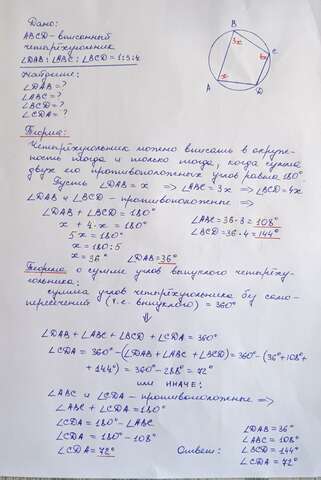 Дано:
ABCD - вписанный
четырёхугольник
∠DAB : ∠ABC : ∠BCD = 1:3:4
Найдите:
∠DAB = ?
∠ABC = ?
∠BCD = ?
∠CDA = ?
B
3x
C
x
A
D
Теорема:
Четырёхугольник можно вписать в окруж-
ность тогда и только тогда, когда сумма
двух его противоположных углов равна 180°.
Пусть ∠DAB = x ⇒ ∠ABC = 3x ⇒ ∠BCD = 4x
∠DAB и ∠BCD - противоположные ⇒
∠DAB + ∠BCD = 180°
x + 4·x = 180°
5x = 180°
x = 180:5
x = 36° ∠DAB = 36°
∠ABC = 36·3 = 108°
∠BCD = 36·4 = 144°
Теорема о сумме углов выпуклого четырёху-
гольника:
сумма углов четырёхугольника без само-
пересечений (т.е. выпуклого) = 360°
⇓
∠DAB + ∠ABC + ∠BCD + ∠CDA = 360°
∠CDA = 360° - (∠DAB + ∠ABC + ∠BCD) = 360° - (36° + 108° +
+ 144°) = 360° - 288° = 72°
или иначе:
∠ABC и ∠CDA - противоположные ⇒
∠ABC + ∠CDA = 180°
∠CDA = 180° - ∠ABC
∠CDA = 180° - 108°
∠CDA = 72°
Ответ:
∠DAB = 36°
∠ABC = 108°
∠BCD = 144°
∠CDA = 72°